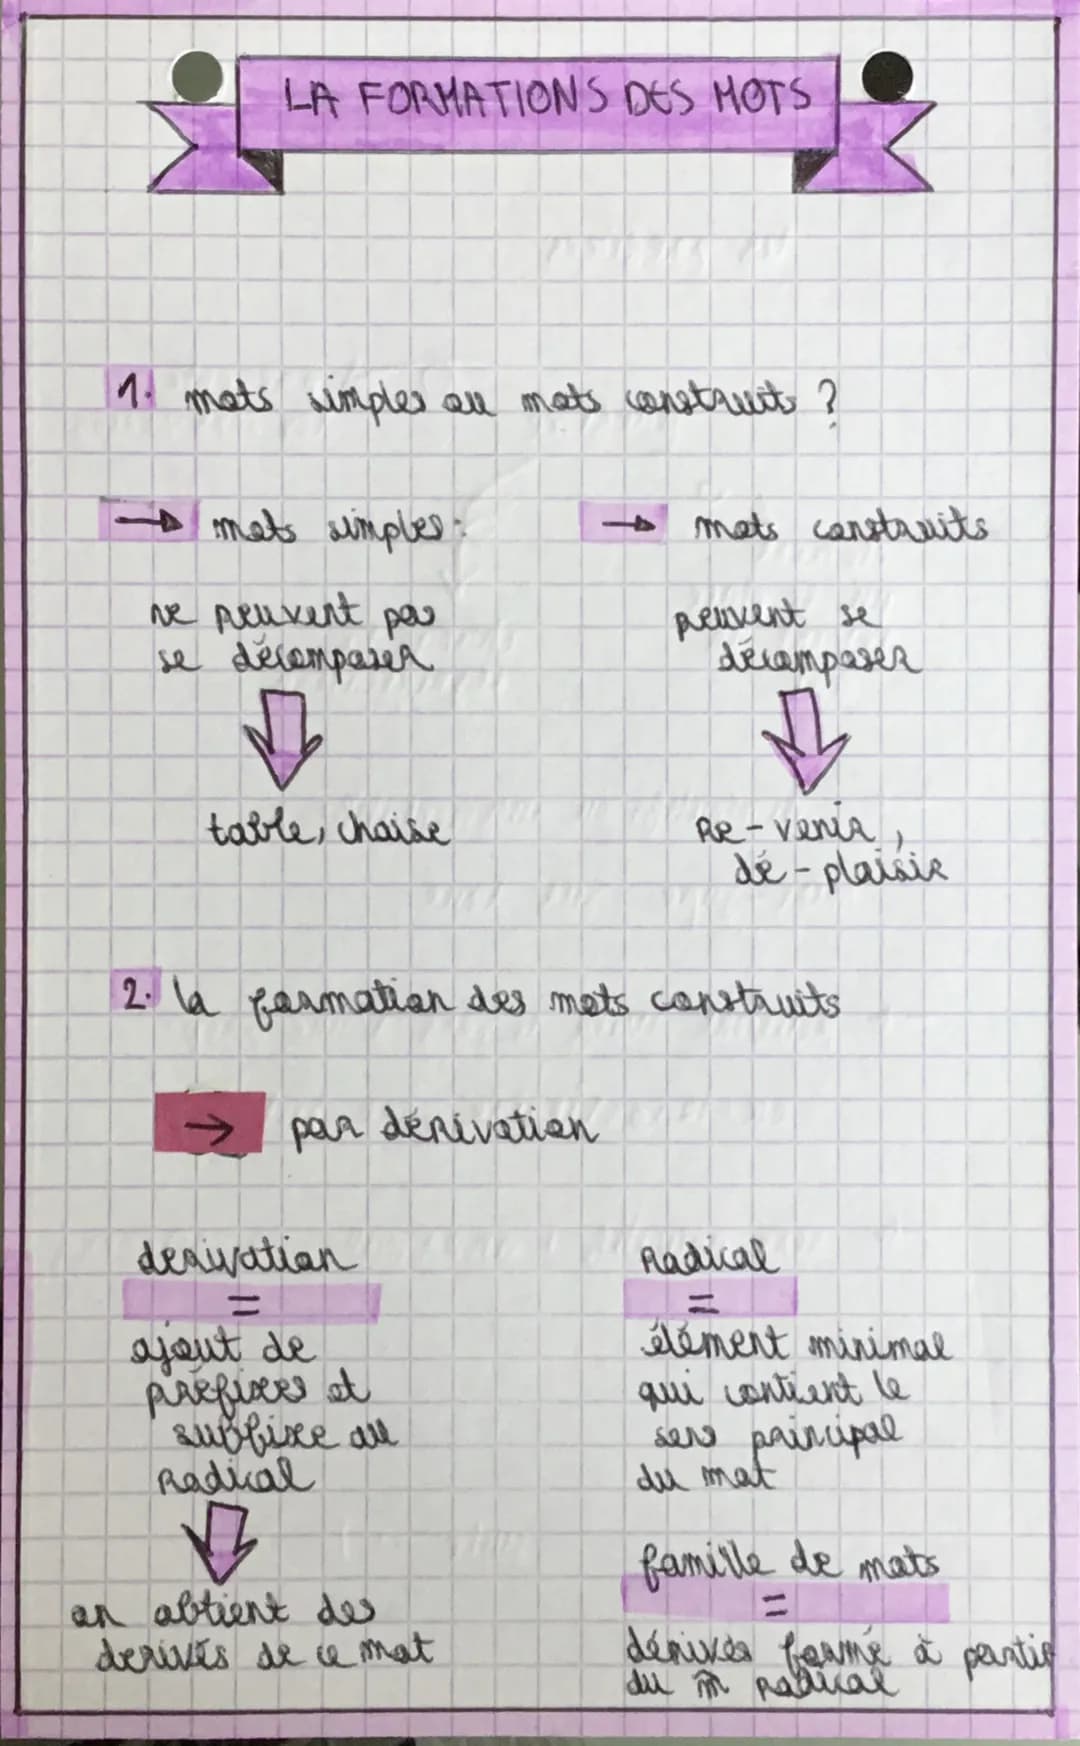 LA FORMATIONS DES MOTS
1. mots simples ou mots construits ?
→ mots simples :
ne peuvent pas
se décomposer
table, chaise
→ mots construits
peuvent se
décomposer
Re - venir ,
dé - plaisir
2. la formation des mots construits
→ par dérivation
derivation
=
ajout de
préfixes et
suffixe au
Radical
on obtient des
derivés de ce mot
Radical
=
élément minimal
qui contient le
sens principal
du mot
famille de mots
=
dérivés formé à partir
du m̂ radical